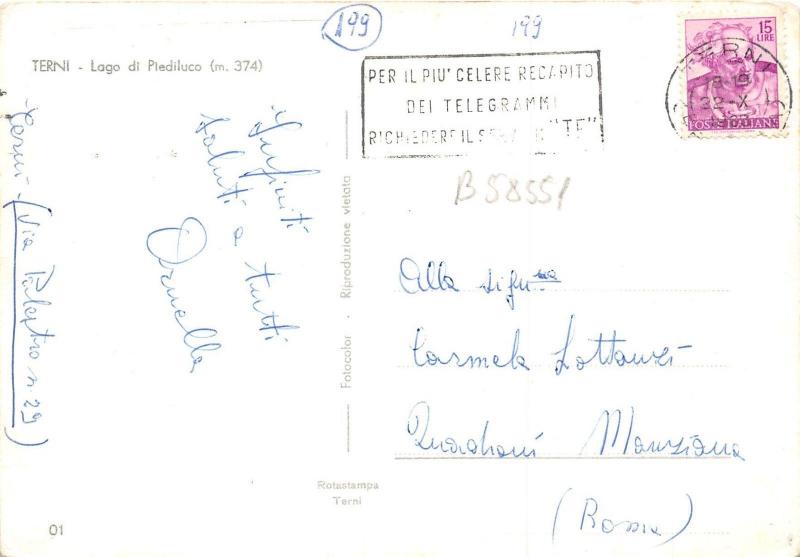 199
199
TERNI - Lago di Piediluco (m. 374)
15
LIRE
POSTE ITALIANE
TERNI
18-19
22-X
1963
PER IL PIU' CELERE RECAPITO
DEI TELEGRAMMI
RICHIEDERE IL SE "TE"
B 58551
Infiniti
saluti a
tutti
Ornella
Terni - (Via Palestro n. 29)
Fotocolor - Riproduzione vietata
Alla sig.na
Carmela Lottanzi
Quadroni Manziana
(Roma)
Rotastampa
Terni
01